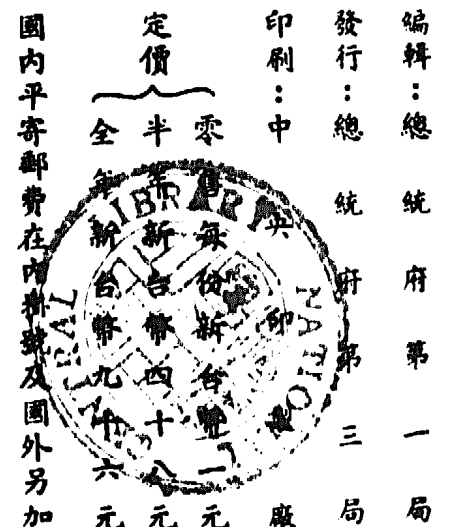 編輯：總統府第一局
發行：總統府第三局
印刷：中央印製廠
定價
零售每份新台幣一元
半年新台幣四十八元
全年新台幣九十六元
國內平寄郵費在內掛號及國外另加
NATIONAL CENTRAL LIBRARY